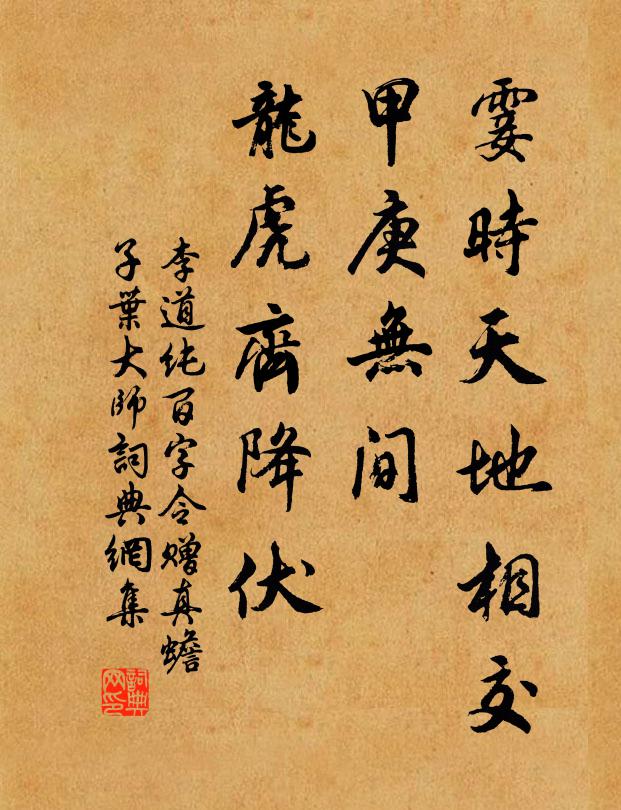 霎時天地相交
甲庚無間
龍虎齊降伏
李道純百字令贈真蟾
子葉大師詞典網集
詞典網印